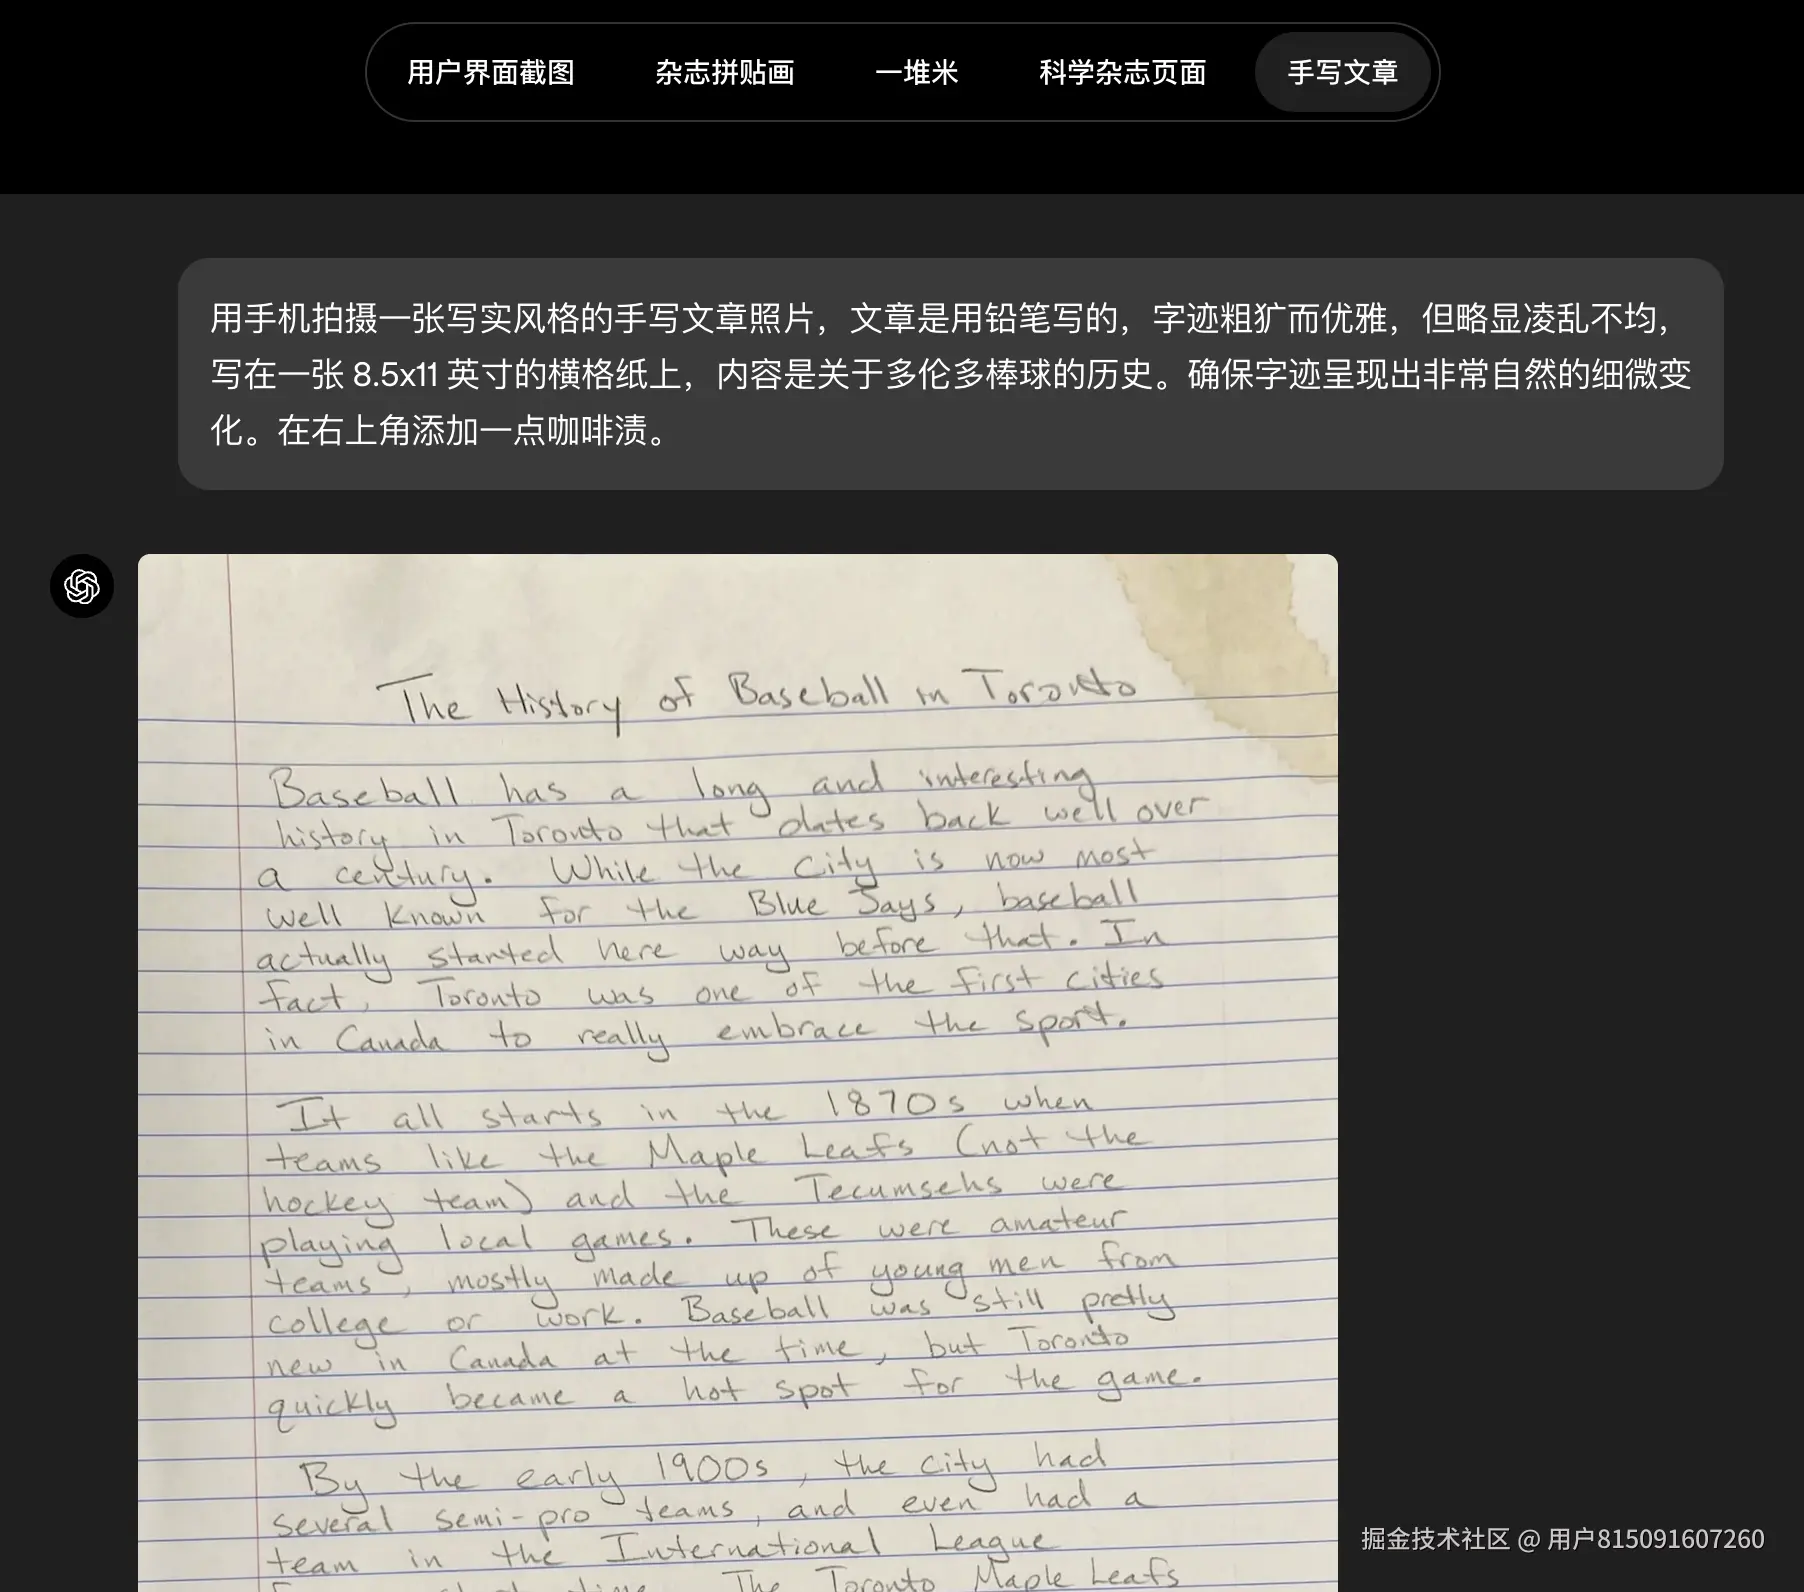 用户界面截图 杂志拼贴画 一堆米 科学杂志页面 手写文章
用手机拍摄一张写实风格的手写文章照片，文章是用铅笔写的，字迹粗犷而优雅，但略显凌乱不均，
写在一张 8.5x11 英寸的横格纸上，内容是关于多伦多棒球的历史。确保字迹呈现出非常自然的细微变
化。在右上角添加一点咖啡渍。
The History of Baseball in Toronto
Baseball has a long and interesting
history in Toronto that dates back well over
a century. While the City is now most
well known for the Blue Jays, baseball
actually started here way before that. In
fact, Toronto was one of the first cities
in Canada to really embrace the sport.
It all starts in the 1870s when
teams like the Maple Leafs (not the
hockey team) and the Tecumsehs were
playing local games. These were amateur
teams, mostly made up of young men from
college or work. Baseball was still pretty
new in Canada at the time, but Toronto
quickly became a hot spot for the game.
By the early 1900s, the city had
several semi-pro teams, and even had a
team in the International League
The Toronto Maple Leafs
掘金技术社区 @ 用户815091607260